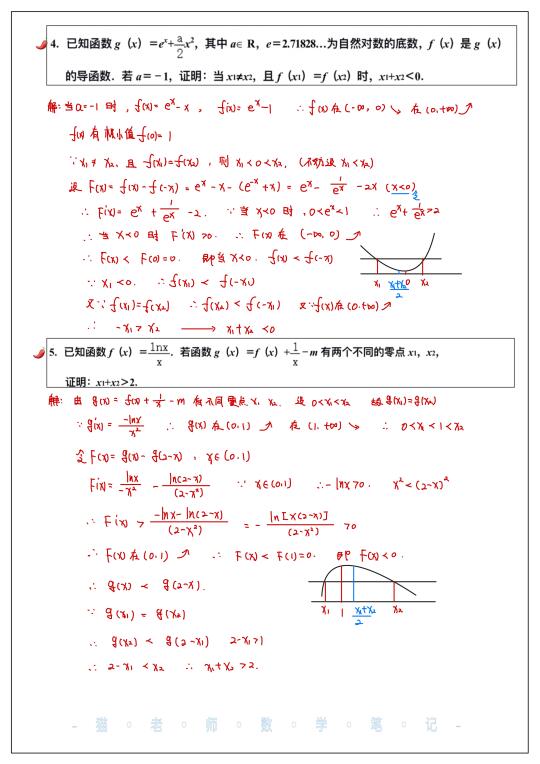 4. 已知函数 g（x）＝eˣ+a/2 x²，其中 a∈ R，e＝2.71828…为自然对数的底数，f（x）是 g（x）
的导函数．若 a＝－1，证明：当 x₁≠x₂，且 f（x₁）＝f（x₂）时，x₁+x₂<0．
解: 当a=-1 时，f(x)= eˣ-x ， f'(x)= eˣ-1 ∴ f(x)在(-∞, 0)↘ 在(0,+∞)↗
f(x) 有极小值 f(0)=1
∵ x₁≠x₂. 且 f(x₁)=f(x₂) ，则 x₁<0<x₂. (不妨设 x₁<x₂)
设 F(x)= f(x)-f(-x) = eˣ-x-(e⁻ˣ+x) = eˣ- 1/eˣ -2x (x<0)
∴ F'(x)= eˣ + 1/eˣ -2. ∵ 当 x<0 时 , 0<eˣ<1 ∴ eˣ+ 1/eˣ>2
∴ 当 x<0 时 F'(x)>0. ∴ F(x)在 (-∞,0)↗
∴ F(x)< F(0)=0. 即当x<0. f(x)< f(-x)
∵ x₁<0. ∴ f(x₁) < f(-x₁)
又∵ f(x₁)=f(x₂) ∴ f(x₂)< f(-x₁) 又∵f(x)在(0.+∞)↗
∴ -x₁>x₂ ⟶ x₁+x₂ <0
x₁ x₁+x₂/2 0 x₂
5. 已知函数 f（x）＝lnx/x．若函数 g（x）＝f（x）+1/x－m 有两个不同的零点 x₁，x₂，
证明：x₁+x₂>2．
解: 由 g(x)= f(x)+ 1/x -m 有不同零点x₁ x₂. 设 0<x₁<x₂ 故g(x₁)=g(x₂)
∵ g'(x)= -lnx/x² ∴ g(x)在(0,1)↗ 在(1,+∞)↘ ∴ 0<x₁<1<x₂
令 F(x)= g(x)- g(2-x) , x∈(0.1)
F'(x)= lnx/-x² - ln(2-x)/(2-x²) ∵ x∈(0,1) ∴-lnx>0. x²<(2-x)²
∴ F'(x) > -lnx-ln(2-x)/(2-x²) = - ln[x(2-x)]/(2-x²) >0
∴ F(x)在(0.1)↗ ∴ F(x)< F(1)=0. 即 F(x)<0.
∴ g(x) < g(2-x).
∵ g(x₁) = g(x₂)
∴ g(x₂) < g(2-x₁) 2-x₁>1
∴ 2-x₁ <x₂ ∴ x₁+x₂ >2.
x₁ 1 x₁+x₂/2 x₂
- 猫 ○ 老 ○ 师 ○ 数 ○ 学 ○ 笔 ○ 记 -